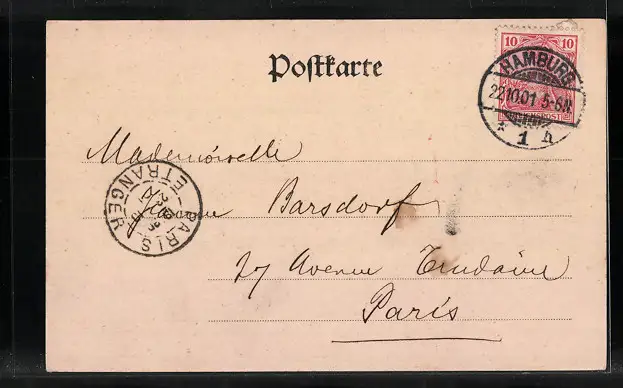 Postkarte
10 10
HAMBURG
22.10.01 5-6N.
* 1 h
Mademoiselle
Barsdorf
PARIS ETRANGER
27 Avenue Trudaine
Paris